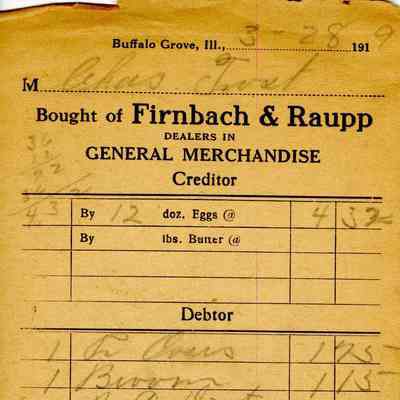 Buffalo Grove, Ill., 3-28 1919
M Chas
Bought of Firnbach & Raupp
DEALERS IN
GENERAL MERCHANDISE
Creditor
By 12 doz. Eggs @ 4 32
By lbs. Butter @
Debtor
1 175
1 Broom 1 15